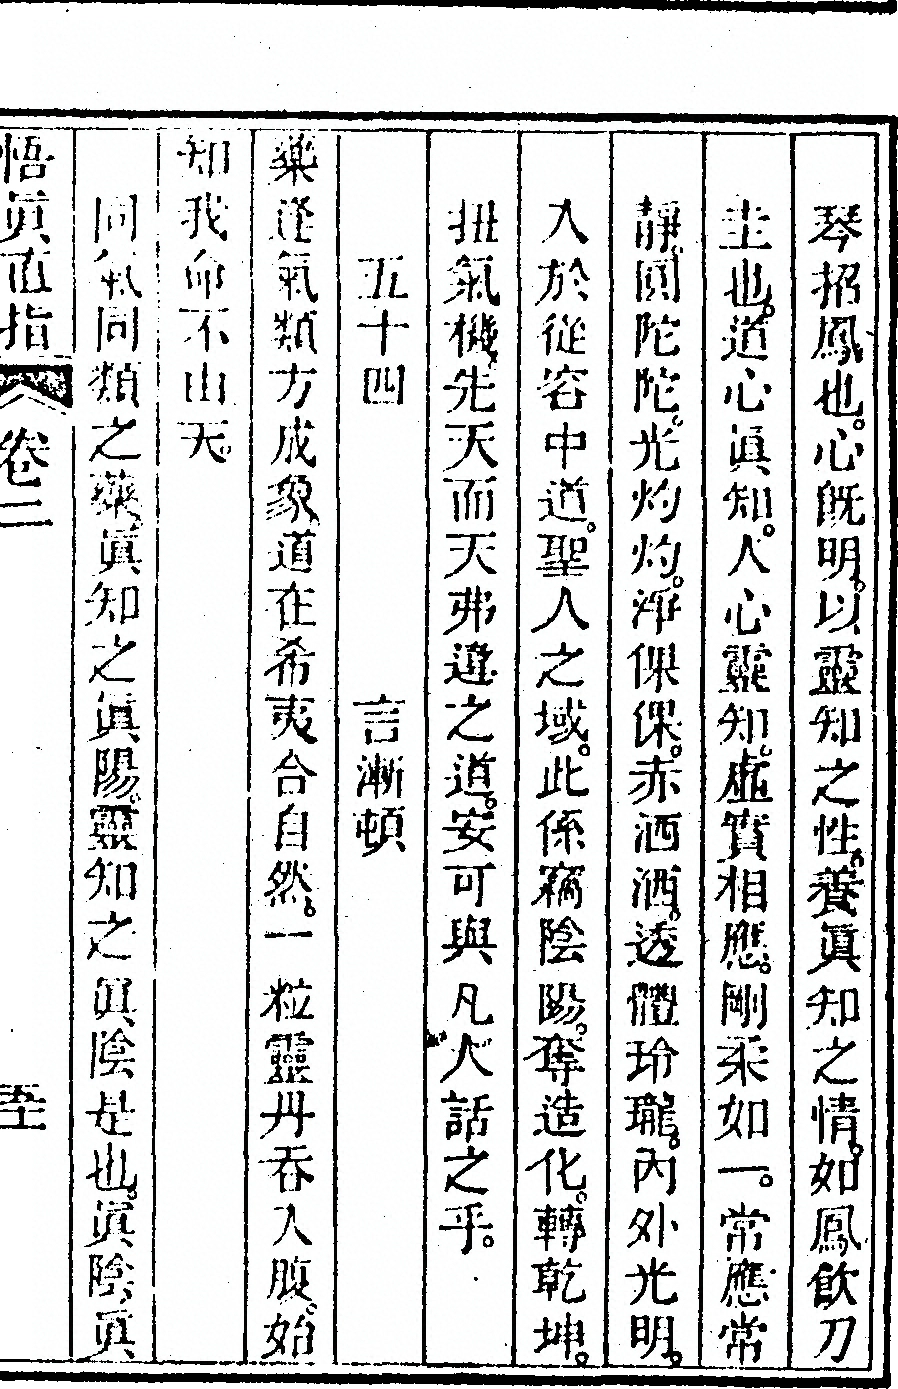 琴招鳳也。心旣明。以靈知之性。養眞知之情。如鳳飮刀
圭也。道心眞知。人心靈知。虛實相應。剛柔如一。常應常
靜。圓陀陀。光灼灼。淨倮倮。赤洒洒。透體玲瓏。內外光明。
入於從容中道。聖人之域。此係竊陰陽。奪造化。轉乾坤。
扭氣機。先天而天弗違之道。安可與凡人話之乎。
五十四 言漸頓
藥逢氣類方成象道在希夷合自然。一粒靈丹吞入腹。始
知我命不由天。
同氣同類之藥眞知之眞陽。靈知之眞陰是也。眞陰眞
悟眞直指 卷二